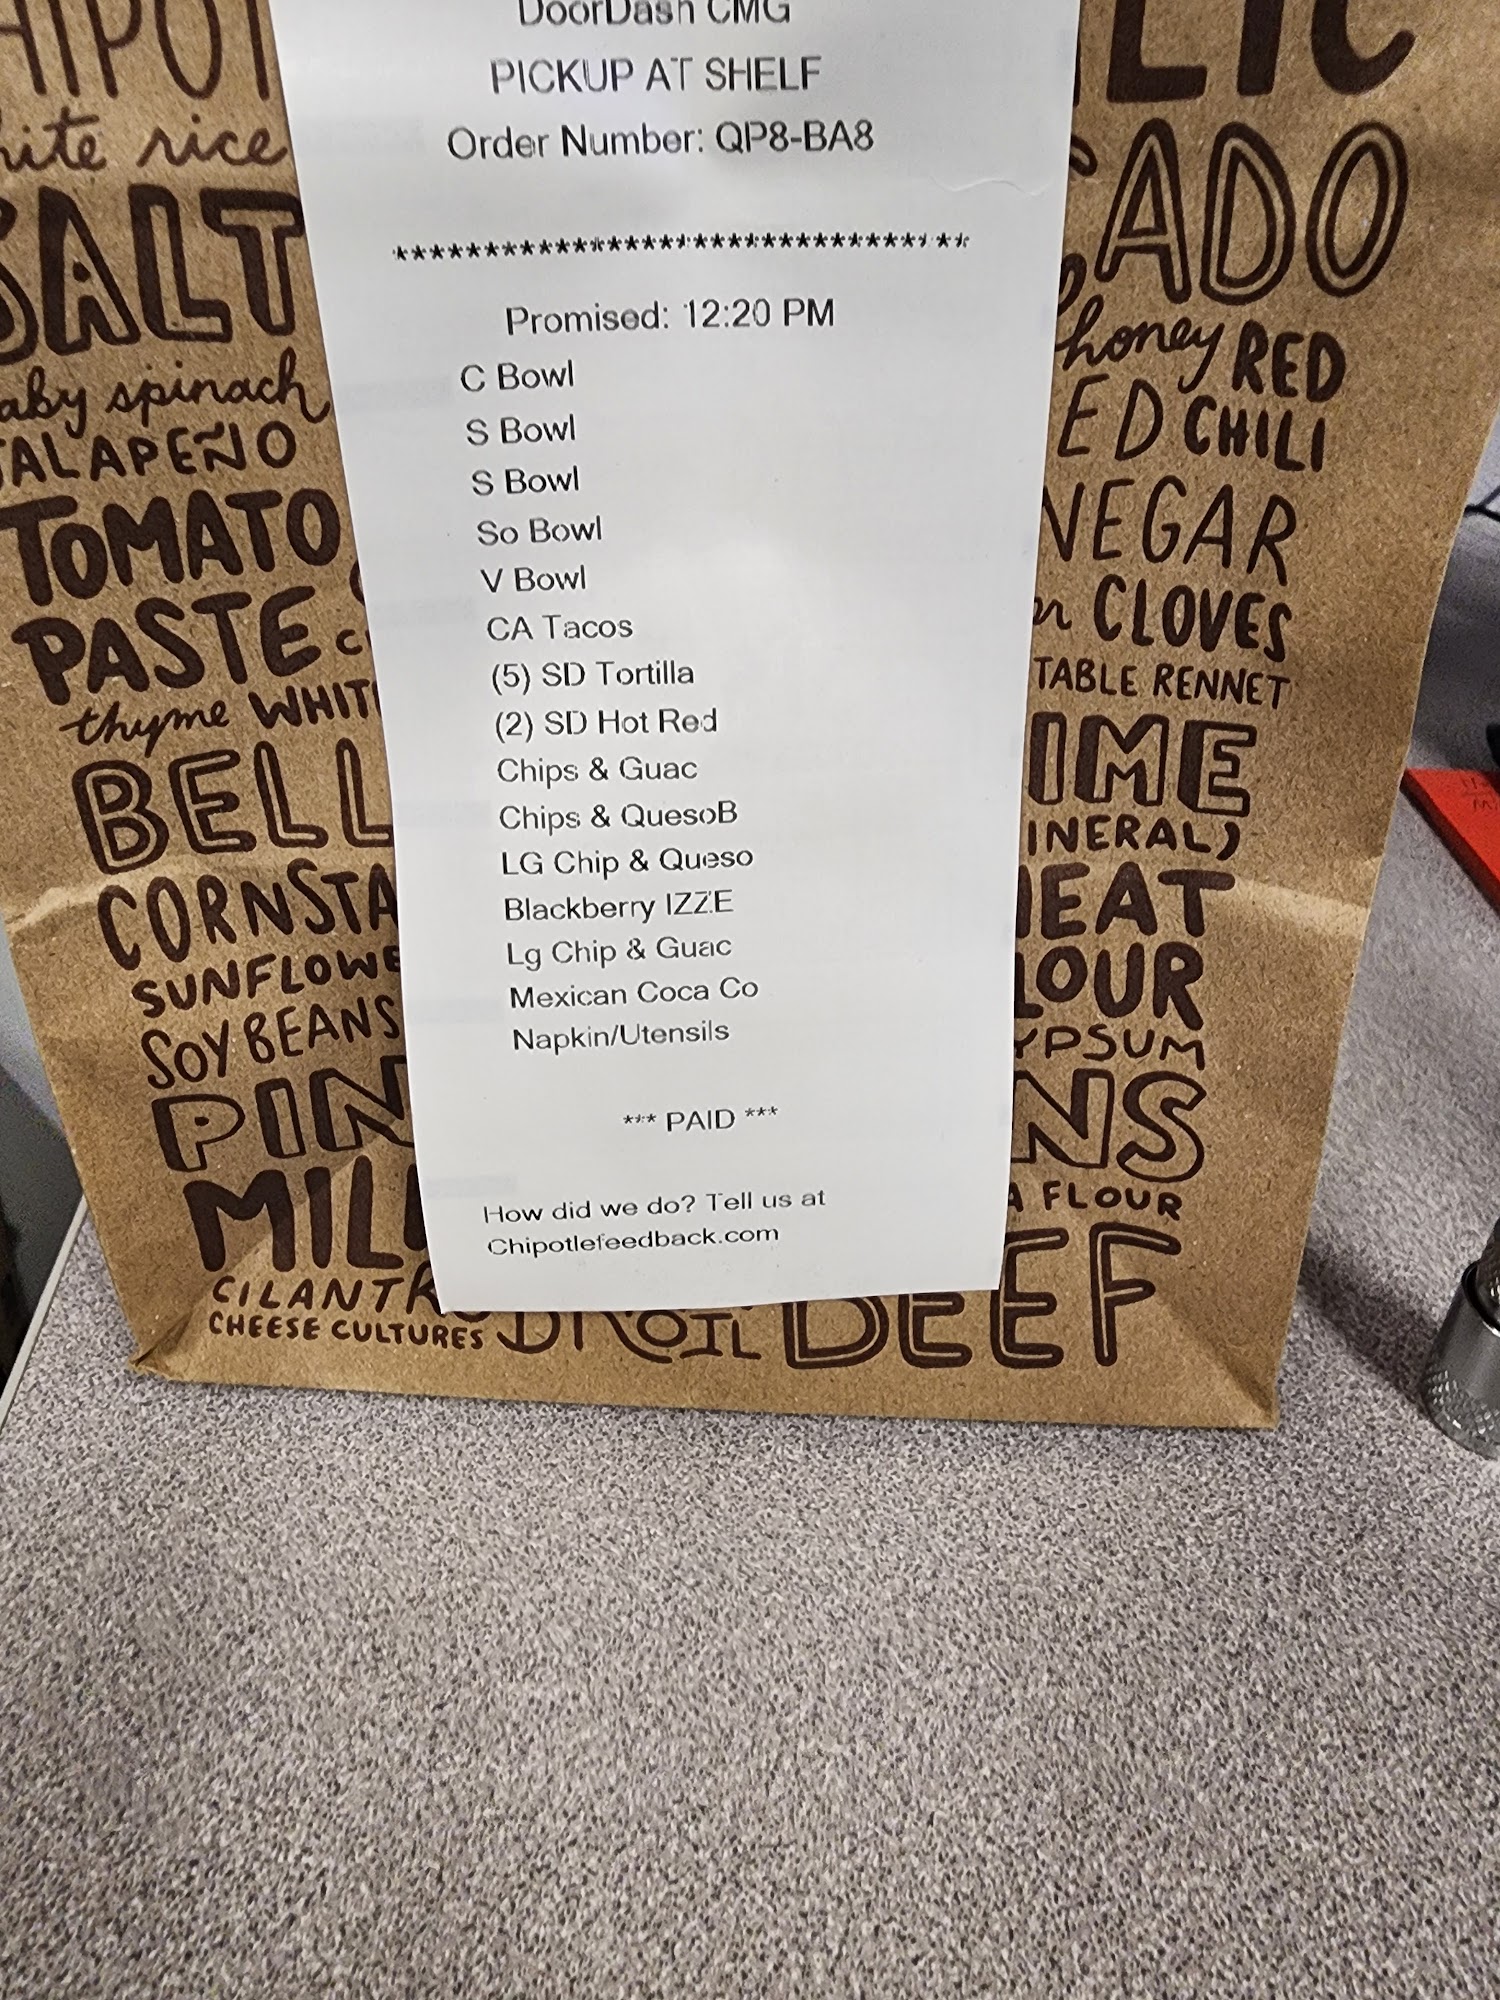 DoorDash CMG
PICKUP AT SHELF
Order Number: QP8-BA8
*********************************
Promised: 12:20 PM
C Bowl
S Bowl
S Bowl
So Bowl
V Bowl
CA Tacos
(5) SD Tortilla
(2) SD Hot Red
Chips & Guac
Chips & QuesoB
LG Chip & Queso
Blackberry IZZE
Lg Chip & Guac
Mexican Coca Co
Napkin/Utensils
*** PAID ***
How did we do? Tell us at
Chipotlefeedback.com
HIPOT
rice
SALT
spinach
JALAPEÑO
TOMATO
PASTE
thyme WHIT
BELL
CORNSTA
SUNFLOWE
SOY BEANS
PIN
MIL
CILANTR
CHEESE CULTURES
LIC
CADO
honey RED
ED CHILI
NEGAR
CLOVES
TABLE RENNET
IME
INERAL)
HEAT
LOUR
YPSUM
NS
A FLOUR
OIL BEEF